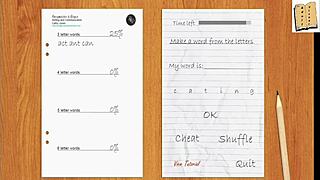 3 letter words 25%
act ant can
4 letter words 0%
5 letter words 0%
6 letter words 0%
Time left
Make a word from the letters
My word is:
c a t i n g
OK
Cheat Shuffle
View Tutorial Quit